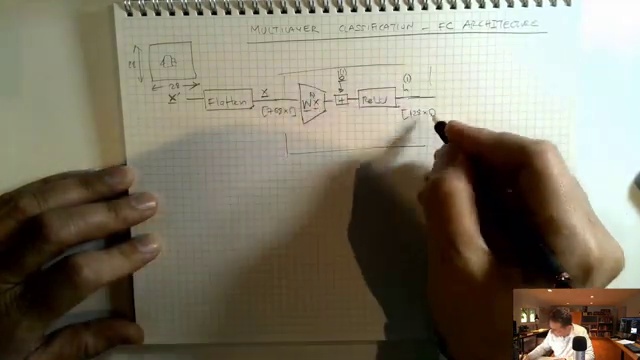 MULTILAYER CLASSIFICATION - FC ARCHITECTURE
28
28
x
Flatten
x
[768x1]
Wx
+
ReLU
(1)
h
[128x1]